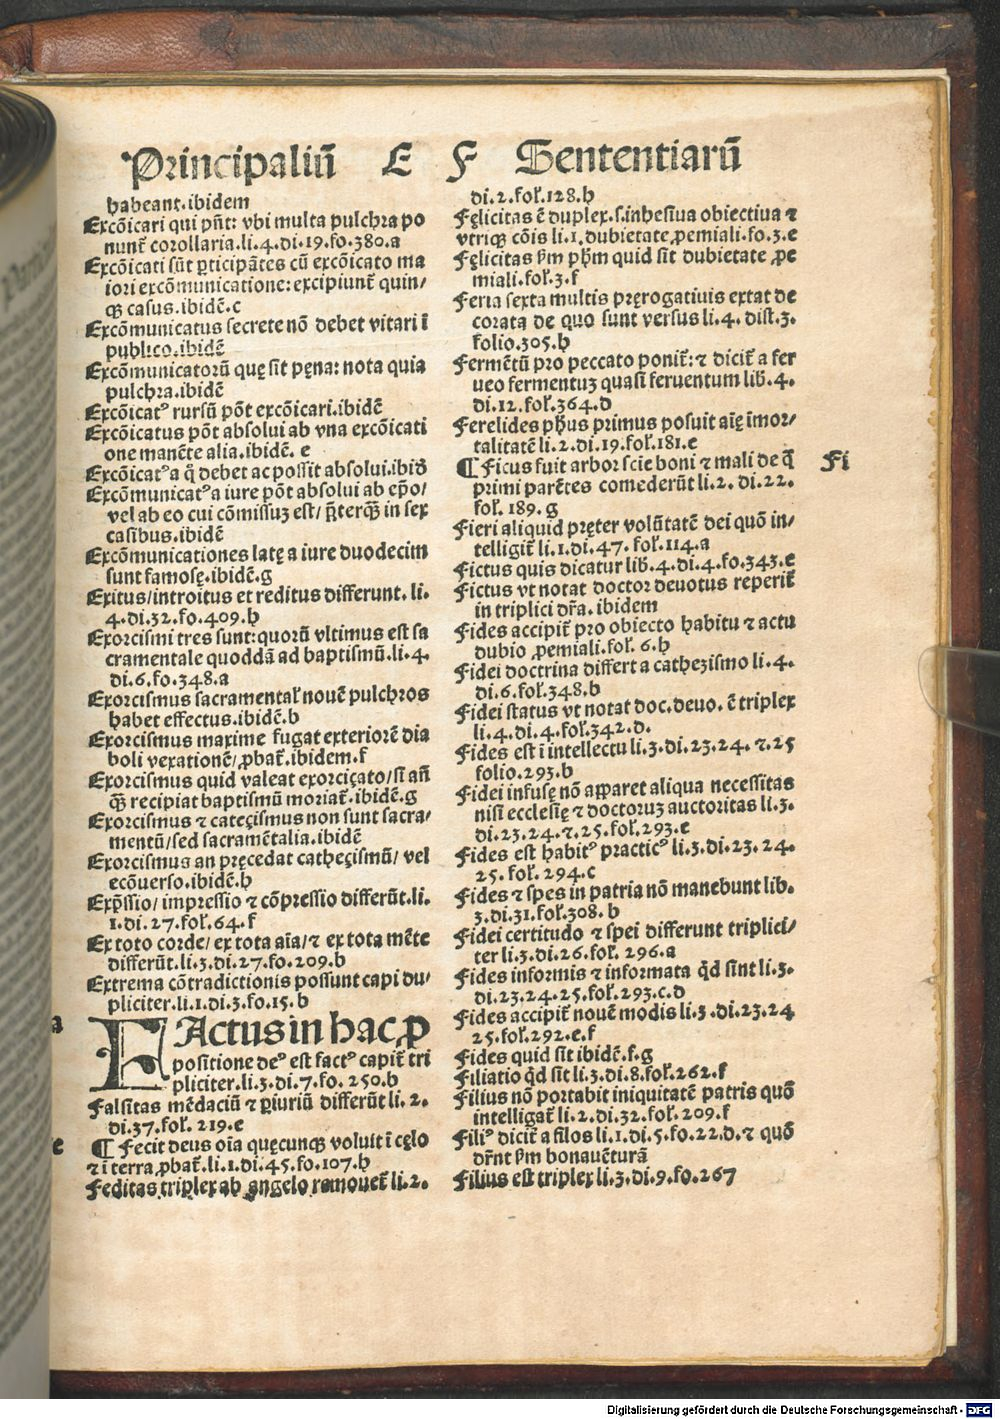 Principaliũ E F Sententiarũ
habeant.ibidem
Excõicari qui pñt: vbi multa pulchra po
nunt̃ corollaria.li.4.di.19.fo.380.a
Excõicati sũt ꝑticipãtes cũ excõicato ma
iori excõmunicatione: excipiunt̃ quin/
qꝫ casus.ibidẽ.c
Excõmunicatus secrete nõ debet vitari ĩ
publico.ibidẽ
Excõmunicatorũ quę sit pęna: nota quia
pulchra.ibidẽ
Excõicatꝰ rursũ põt excõicari.ibidẽ
Excõicatus põt absolui ab vna excõicati
one manẽte alia.ibidẽ. e
Excõicatꝰ a q̃ debet ac possit absolui.ibid̃
Excõmunicatꝰ a iure põt absolui ab ep̃o/
vel ab eo cui cõmissuꝫ est/ p̃terqꝫ̃ in sex
casibus.ibidẽ
Excõmunicationes latę a iure duodecim
sunt famosę.ibidẽ.g
Exitus/introitus et reditus differunt. li.
4.di.32.fo.409.h
Exorcismi tres sunt:quorũ vltimus est sa
cramentale quoddã ad baptismũ.li.4.
di.6.fo.348.a
Exorcismus sacramental̃ nouẽ pulchros
habet effectus.ibidẽ.b
Exorcismus maxime fugat exteriorẽ dia
boli vexationẽ/ ꝓbat̃.ibidem.f
Exorcismus quid valeat exorciçato/si añ
qꝫ̃ recipiat baptismũ moriat̃.ibidẽ.g
Exorcismus ⁊ cateçismus non sunt sacra/
mentũ/sed sacramẽtalia.ibidẽ
Exorcismus an pręcedat catheçismũ/ vel
ecõuerso.ibidẽ.h
Exp̃ssio/ impressio ⁊ cõpressio differũt.li.
1.di.27.fol̃.64.f
Ex toto corde/ ex tota aĩa/⁊ ex tota mẽte
differũt.li.3.di.27.fo.209.b
Extrema cõtradictionis possunt capi du/
pliciter.li.1.di.3.fo.15.b
FActus in hac ꝓ
positione deꝰ est factꝰ capit̃ tri
pliciter.li.3.di.7.fo. 250.b
Falsitas mẽdaciũ ⁊ ꝑiuriũ differũt li. 2.
di.37.fol̃. 219.e
¶ Fecit deus oĩa quęcunqꝫ voluit ĩ cęlo
⁊ ĩ terra ꝓbat̃.li.1.di.45.fo.107.h
Feditas triplex ab angelo remouet̃ li.2.
di.2.fol̃.128.h
Fęlicitas ẽ duplex.s.inhesiua obiectiua ⁊
vtriqꝫ cõis li.1.dubietate ꝓemiali.fo.3.e
Fęlicitas ẜm ph̃m quid sit dubietate ꝓe
miali.fol̃.3.f
Feria sexta multis pręrogatiuis extat de
corata de quo sunt versus li.4. dist.3.
folio.305.h
Fermẽtũ pro peccato ponit̃:⁊ dicit̃ a fer
ueo fermentuꝫ quasi feruentum lib̃.4.
di.12.fol̃.364.d
Ferelides ph̃us primus posuit aĩę ĩmor/
talitatẽ li.2.di.19.fol̃.181.e
¶ Ficus fuit arbor scie boni ⁊ mali de q̃ Fi
primi parẽtes comederũt li.2. di.22.
fol̃. 189.g
Fieri aliquid pręter volũtatẽ dei quõ in/
telligit̃ li.1.di.47.fol̃.114.a
Fictus quis dicatur lib̃.4.di.4.fo.343.e
Fictus vt notat doctor deuotus reperit̃
in triplici dr̃a. ibidem
Fides accipit̃ pro obiecto habitu ⁊ actu
dubio ꝓemiali.fol̃. 6.h
Fidei doctrina differt a catheʒismo li.4.
di.6.fol̃.348.b
Fidei status vt notat doc.deuo. ẽ triplex
li.4.di.4.fol̃.342.d.
Fides est ĩ intellectu li.3.di.23.24. ⁊.25
folio.293.b
Fidei infusę nõ apparet aliqua necessitas
nisi ecclesię ⁊ doctoruꝫ auctoritas li.3.
di.23.24.⁊.25.fol̃.293.e
Fides est habitꝰ practicꝰ li.3.di.23.24.
25.fol̃.294.c
Fides ⁊ spes in patria nõ manebunt lib̃.
3.di.31.fol̃.308.b
Fidei certitudo ⁊ spei differunt triplici/
ter li.3.di.26.fol̃. 296.a
Fides informis ⁊ informata q̃d sint li.3.
di.23.24.25.fol̃.293.c.d
Fides accipit̃ nouẽ modis li.3.di.23.24
25.fol̃.292.e.f
Fides quid sit ibidẽ.f.g
Filiatio q̃d sit li.3.di.8.fol̃.262.f
Filius nõ portabit iniquitatẽ patris quõ
intelligat̃ li.2.di.32.fol̃.209.f
Filiꝰ dicit̃ a filos li.1.di.5.fo.22.d.⁊ quõ
dr̃nt ẜm bonauẽturã
Filius est triplex li.3.di.9.fo.267
Digitalisierung gefördert durch die Deutsche Forschungsgemeinschaft - DFG